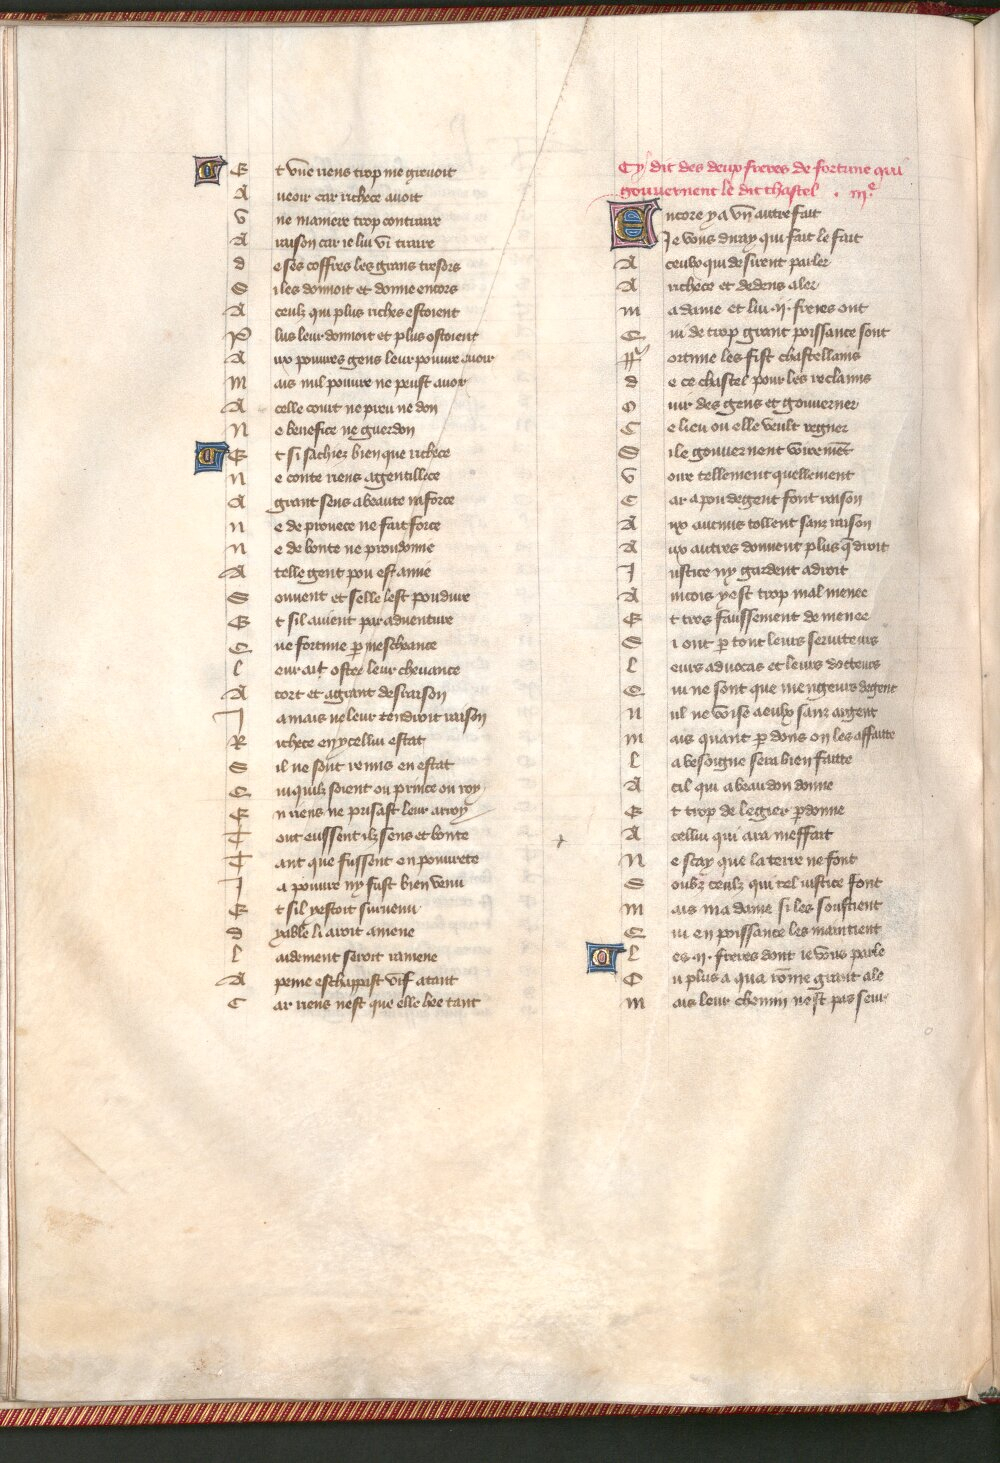 Et vne riens trop me greuoit
A veoir car richece auoit
Vne maniere trop contraire
A raison car ie lui vi traire
de ses coffres les grans tresors
Siles donnoit et donne encors
A ceulz qui plus riches estoient
Plus leur donnoit et plus ostoient
Aux poures gens leur poure auoir
mais nul poure ne peust auoir
A celle court ne preu ne don
Ne benefice ne guerdon
Et si sachiez bien que richece
Ne conte riens a gentillece
A grant sens a beaute na force
ne de prouece ne fait force
ne de bonte ne preudomme
A telle gent pou est amie
Souuent et selle lest pou dure
Et sil auient par aduenture
Que fortune p mescheance
leur ait oster leur cheuance
A tort et a grant desraison
Jamais ne leur rendroit raison
Richece en ycellui estat
Sil ne sont remis en estat
Quiquilz soient ou prince ou roy
En riens ne prisast leur arroy
Tout eussent ilz sens et bonte
Tant que fussent en pourete
Ja poure ny fust bien venu
Et sil yestoit suruenu
dyable li aroit amene
Laidement seroit ramene
A peine eschappast vif atant
Car riens nest que elle hee tant
Cy dit des deux freres de fortune qui
gouuernent le dit chastel . iiie
Encore y a vn autre fait
Je vous diray qui fait le fait
A ceulx qui desirent parler
A richece et dedens aler
ma dame et lui .ii. freres ont
Qui de trop grant poissance sont
Fortune les fist chastellains
de ce chastel pour les reclains
Ouir des gens et gouuerner
Ce lieu ou elle veult regner
Sile gouuernent voirement
Voire tellement quellement
Car a pou de gent font raison
Aux aucuns tollent sanz raison
Aux autres donnent plus q droit
Justice ny gardent a droit
Aincois yest trop mal menee
Et tres faussement demenee
Si ont p tout leurs seruiteurs
Leurs aduocas et leurs docteurs
Qui ne sont que mengeurs de gent
Nul ne voise a eulx sanz argent
mais quant p dons on les affaitte
La besoigne sera bien faitte
A cil qui a beau don donne
Et trop de legier pdonne
A cellui qui ara meffait
Ne scay que la terre ne font
Soubz ceulz qui tel iustice font
Mais ma dame si les soustient
Qui en poissance les maintient
Les .ii. freres dont ie vous parle
Ou plus a qua romme grant ale
mais leur chemin nest pas seur